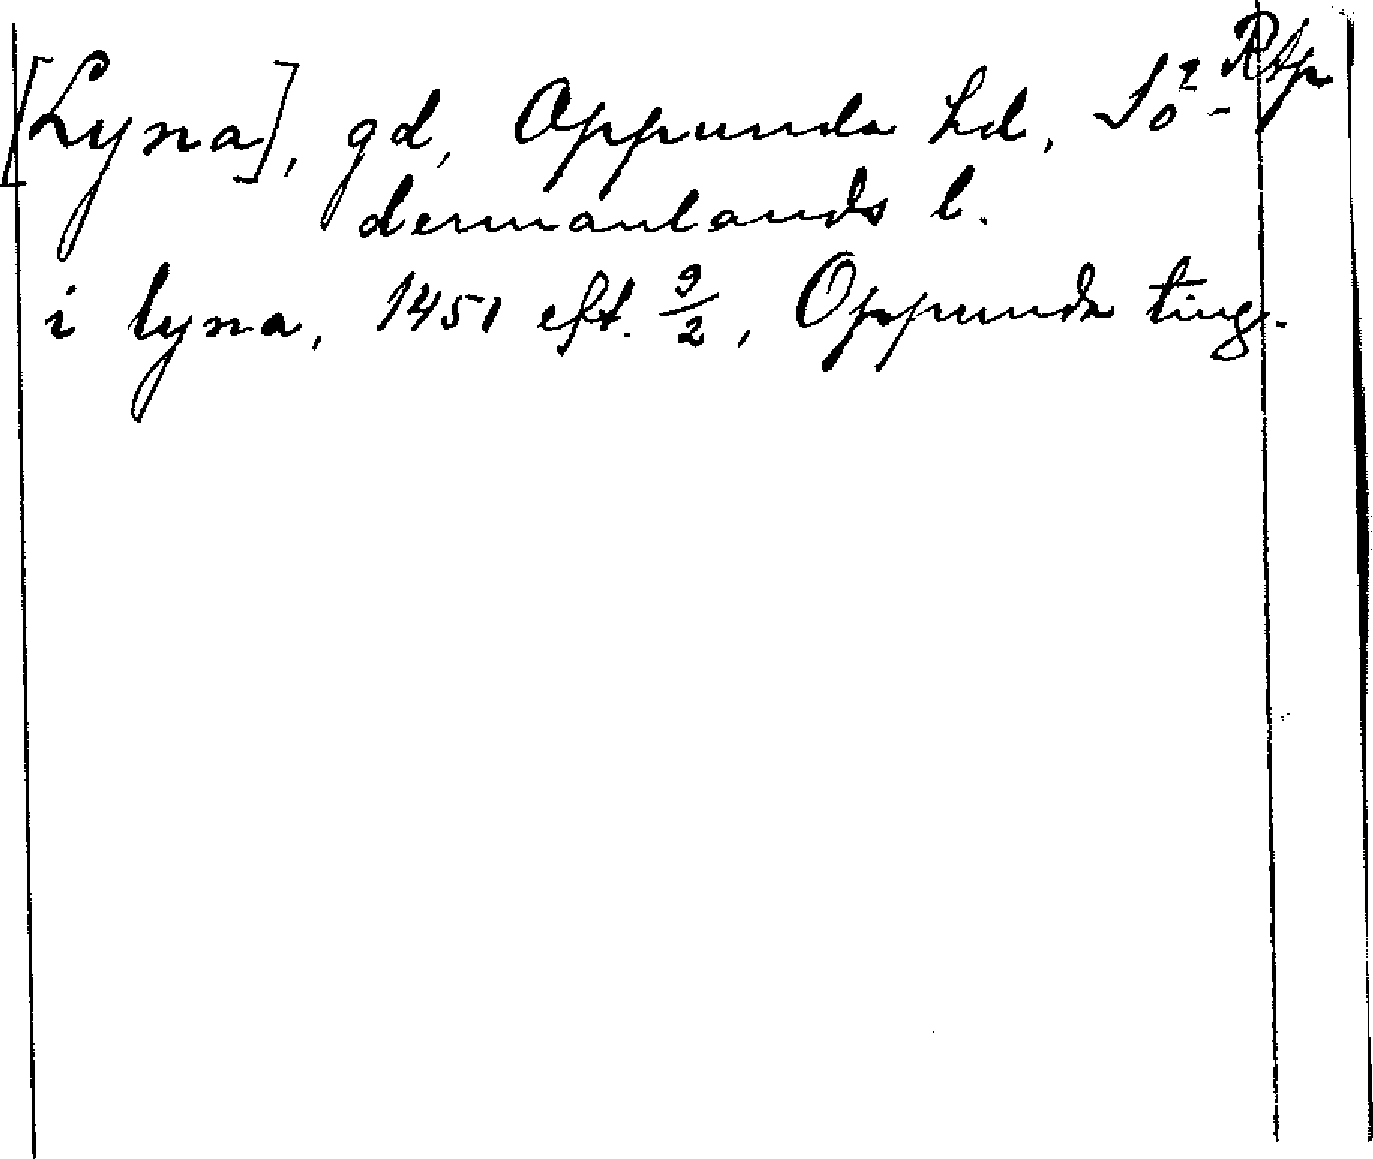 [Lyna], gd, Oppunda hd, Sö- Rtp
dermanlands l.
i lyna, 1451 eft. 9/2, Oppunda ting.